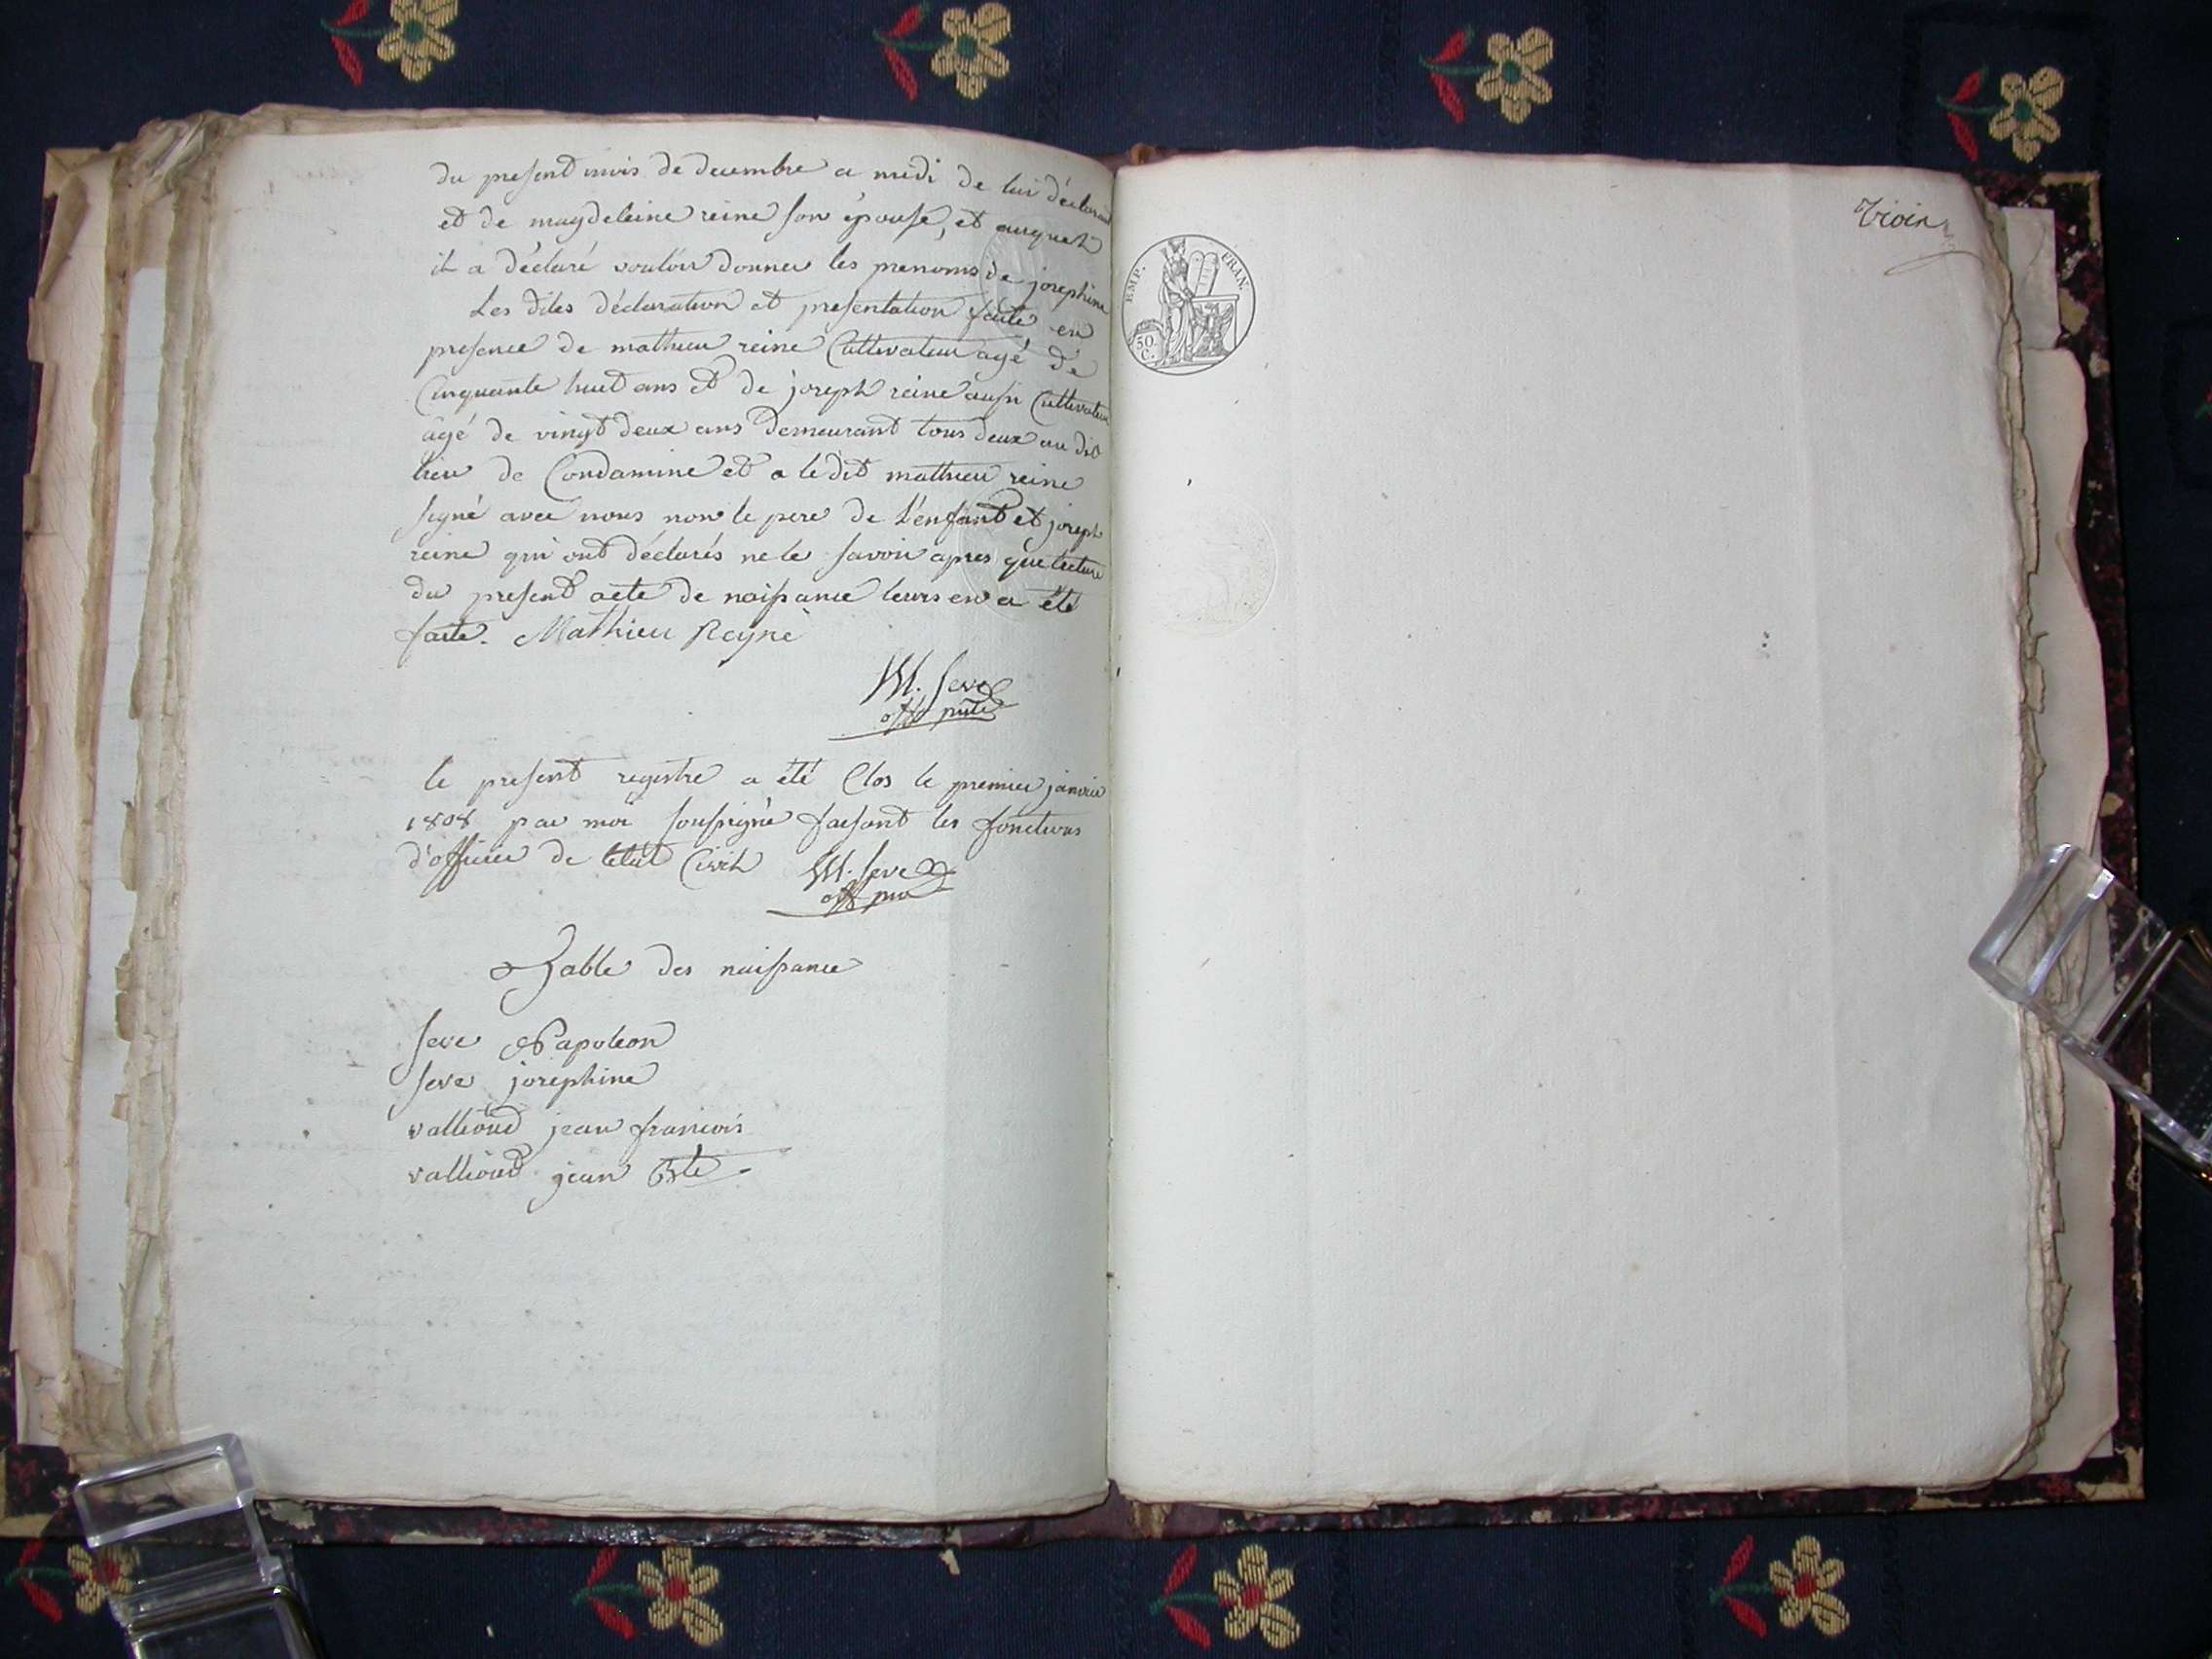 du present mois de decembre a midi de lui déclarant
et de magdeleine reine son épouse, et auquel
il a déclaré vouloir donner les prenoms de josephine
Les dites déclaration et presentation faite en
presence de mathieu reine Cultivateur agé de
Cinquante huit ans et de joseph reine aussi Cultivateur
agé de vingt deux ans demeurant tous deux au dit
lieu de Condamine et a le dit mathieu reine
signé avec nous non le pere de l'enfant et joseph
reine qui ont déclarés ne le savoir apres que lecture
du present acte de naissance leurs en a été
faite. Mathieu Reyne
M. Seve
off
le present registre a été Clos le premier janvier
1808 par moi soussigné faisant les fonctions
d'officier de letat Civil M. Seve
off
Table des naissance
seve Napoleon
seve josephine
vallioud jean francois
vallioud jean Bte
EMP. FRAN.
50
C.